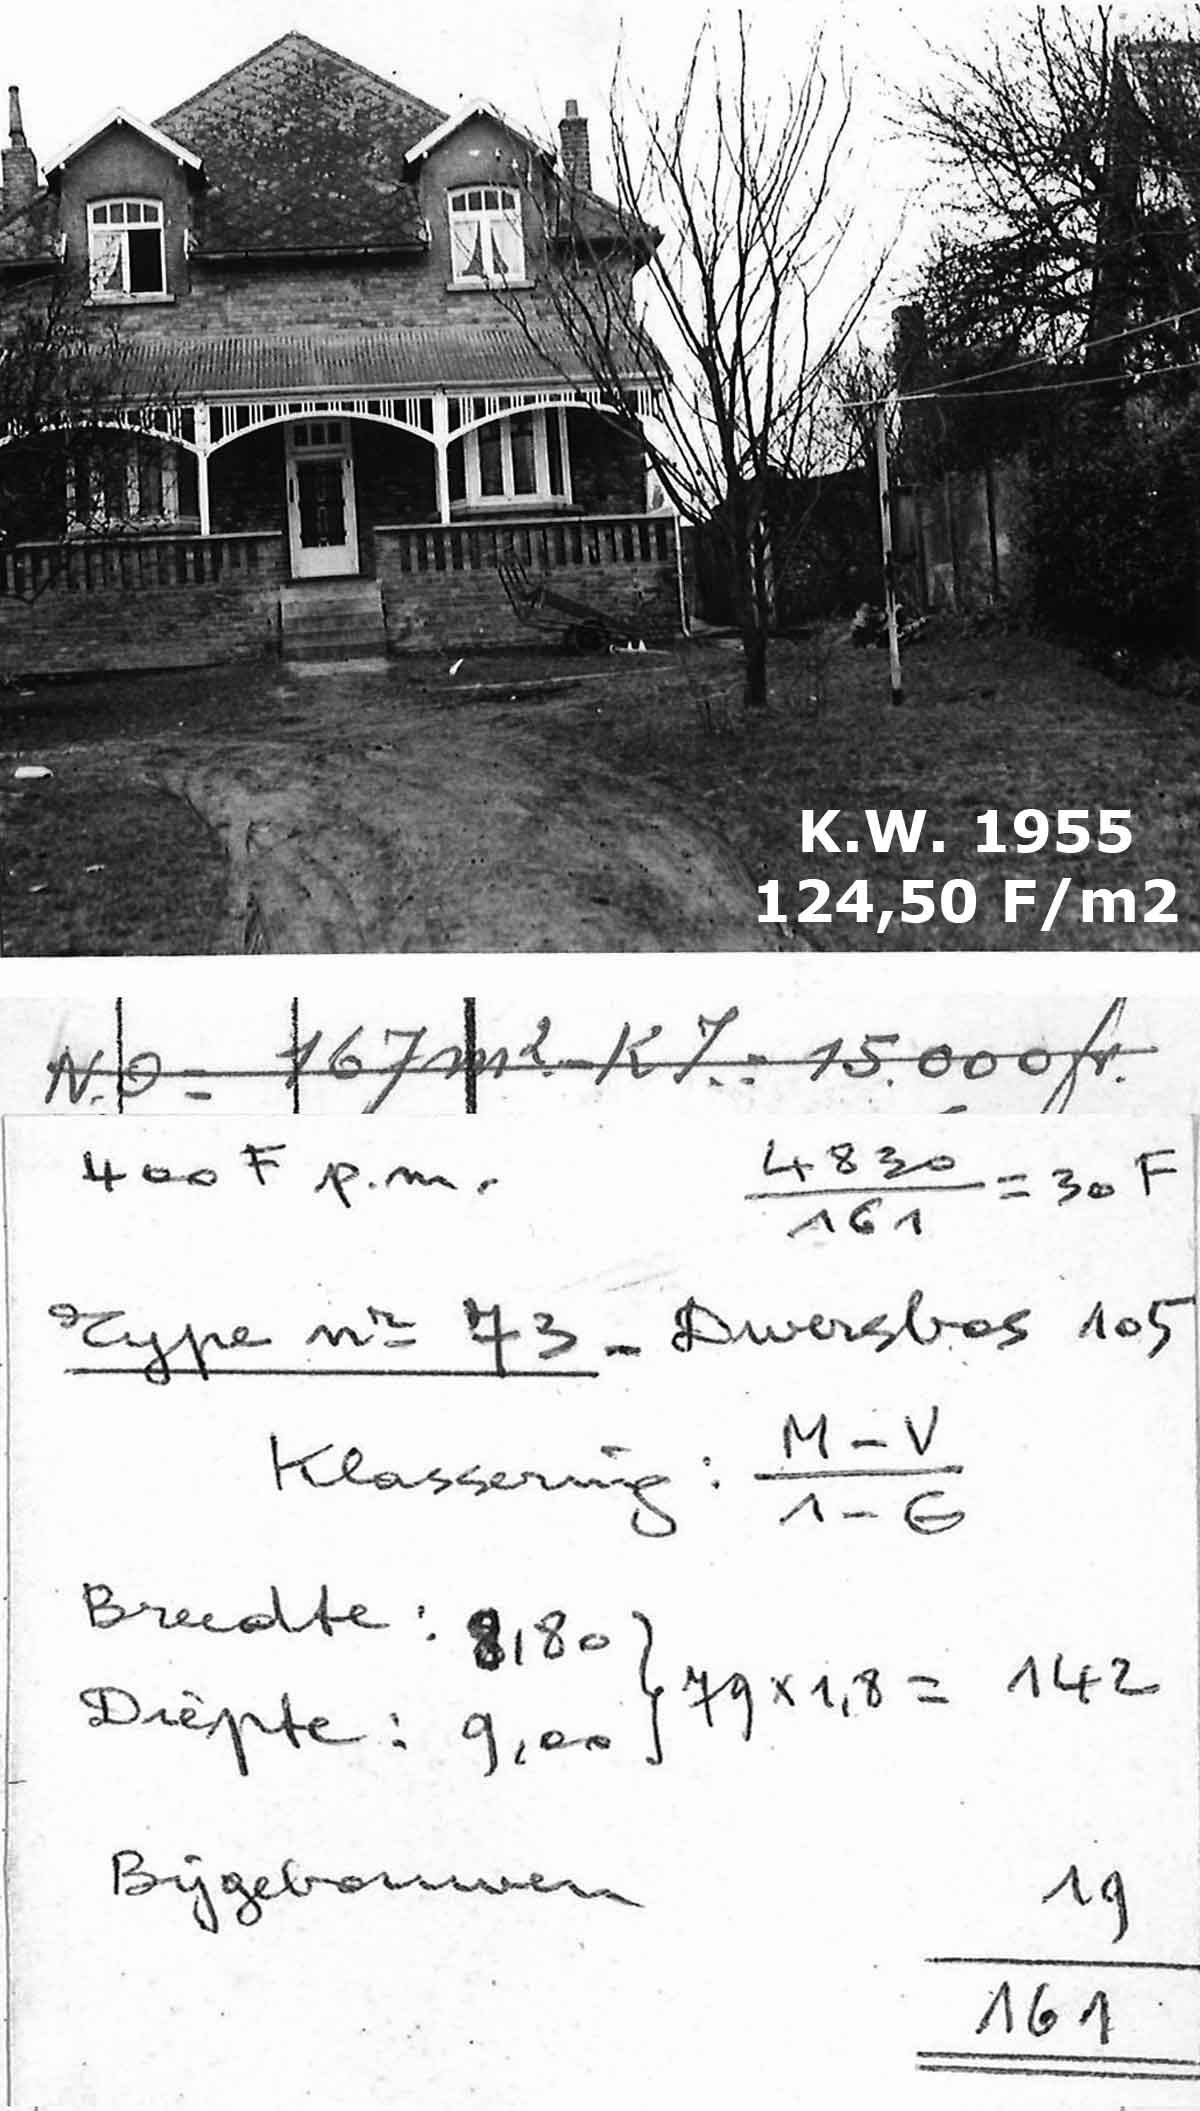 K.W. 1955
124,50 F/m2
N.O = 167 m2 - K.I.: 15.000 fr.
400 F p.m.
4830
161
= 30 F
Type nr 73 - Dwersbos 105
Klassering: M - V
1 - G
Breedte: 8,80
Diepte: 9,00
79 x 1,8 = 142
Bijgebouwen 19
161